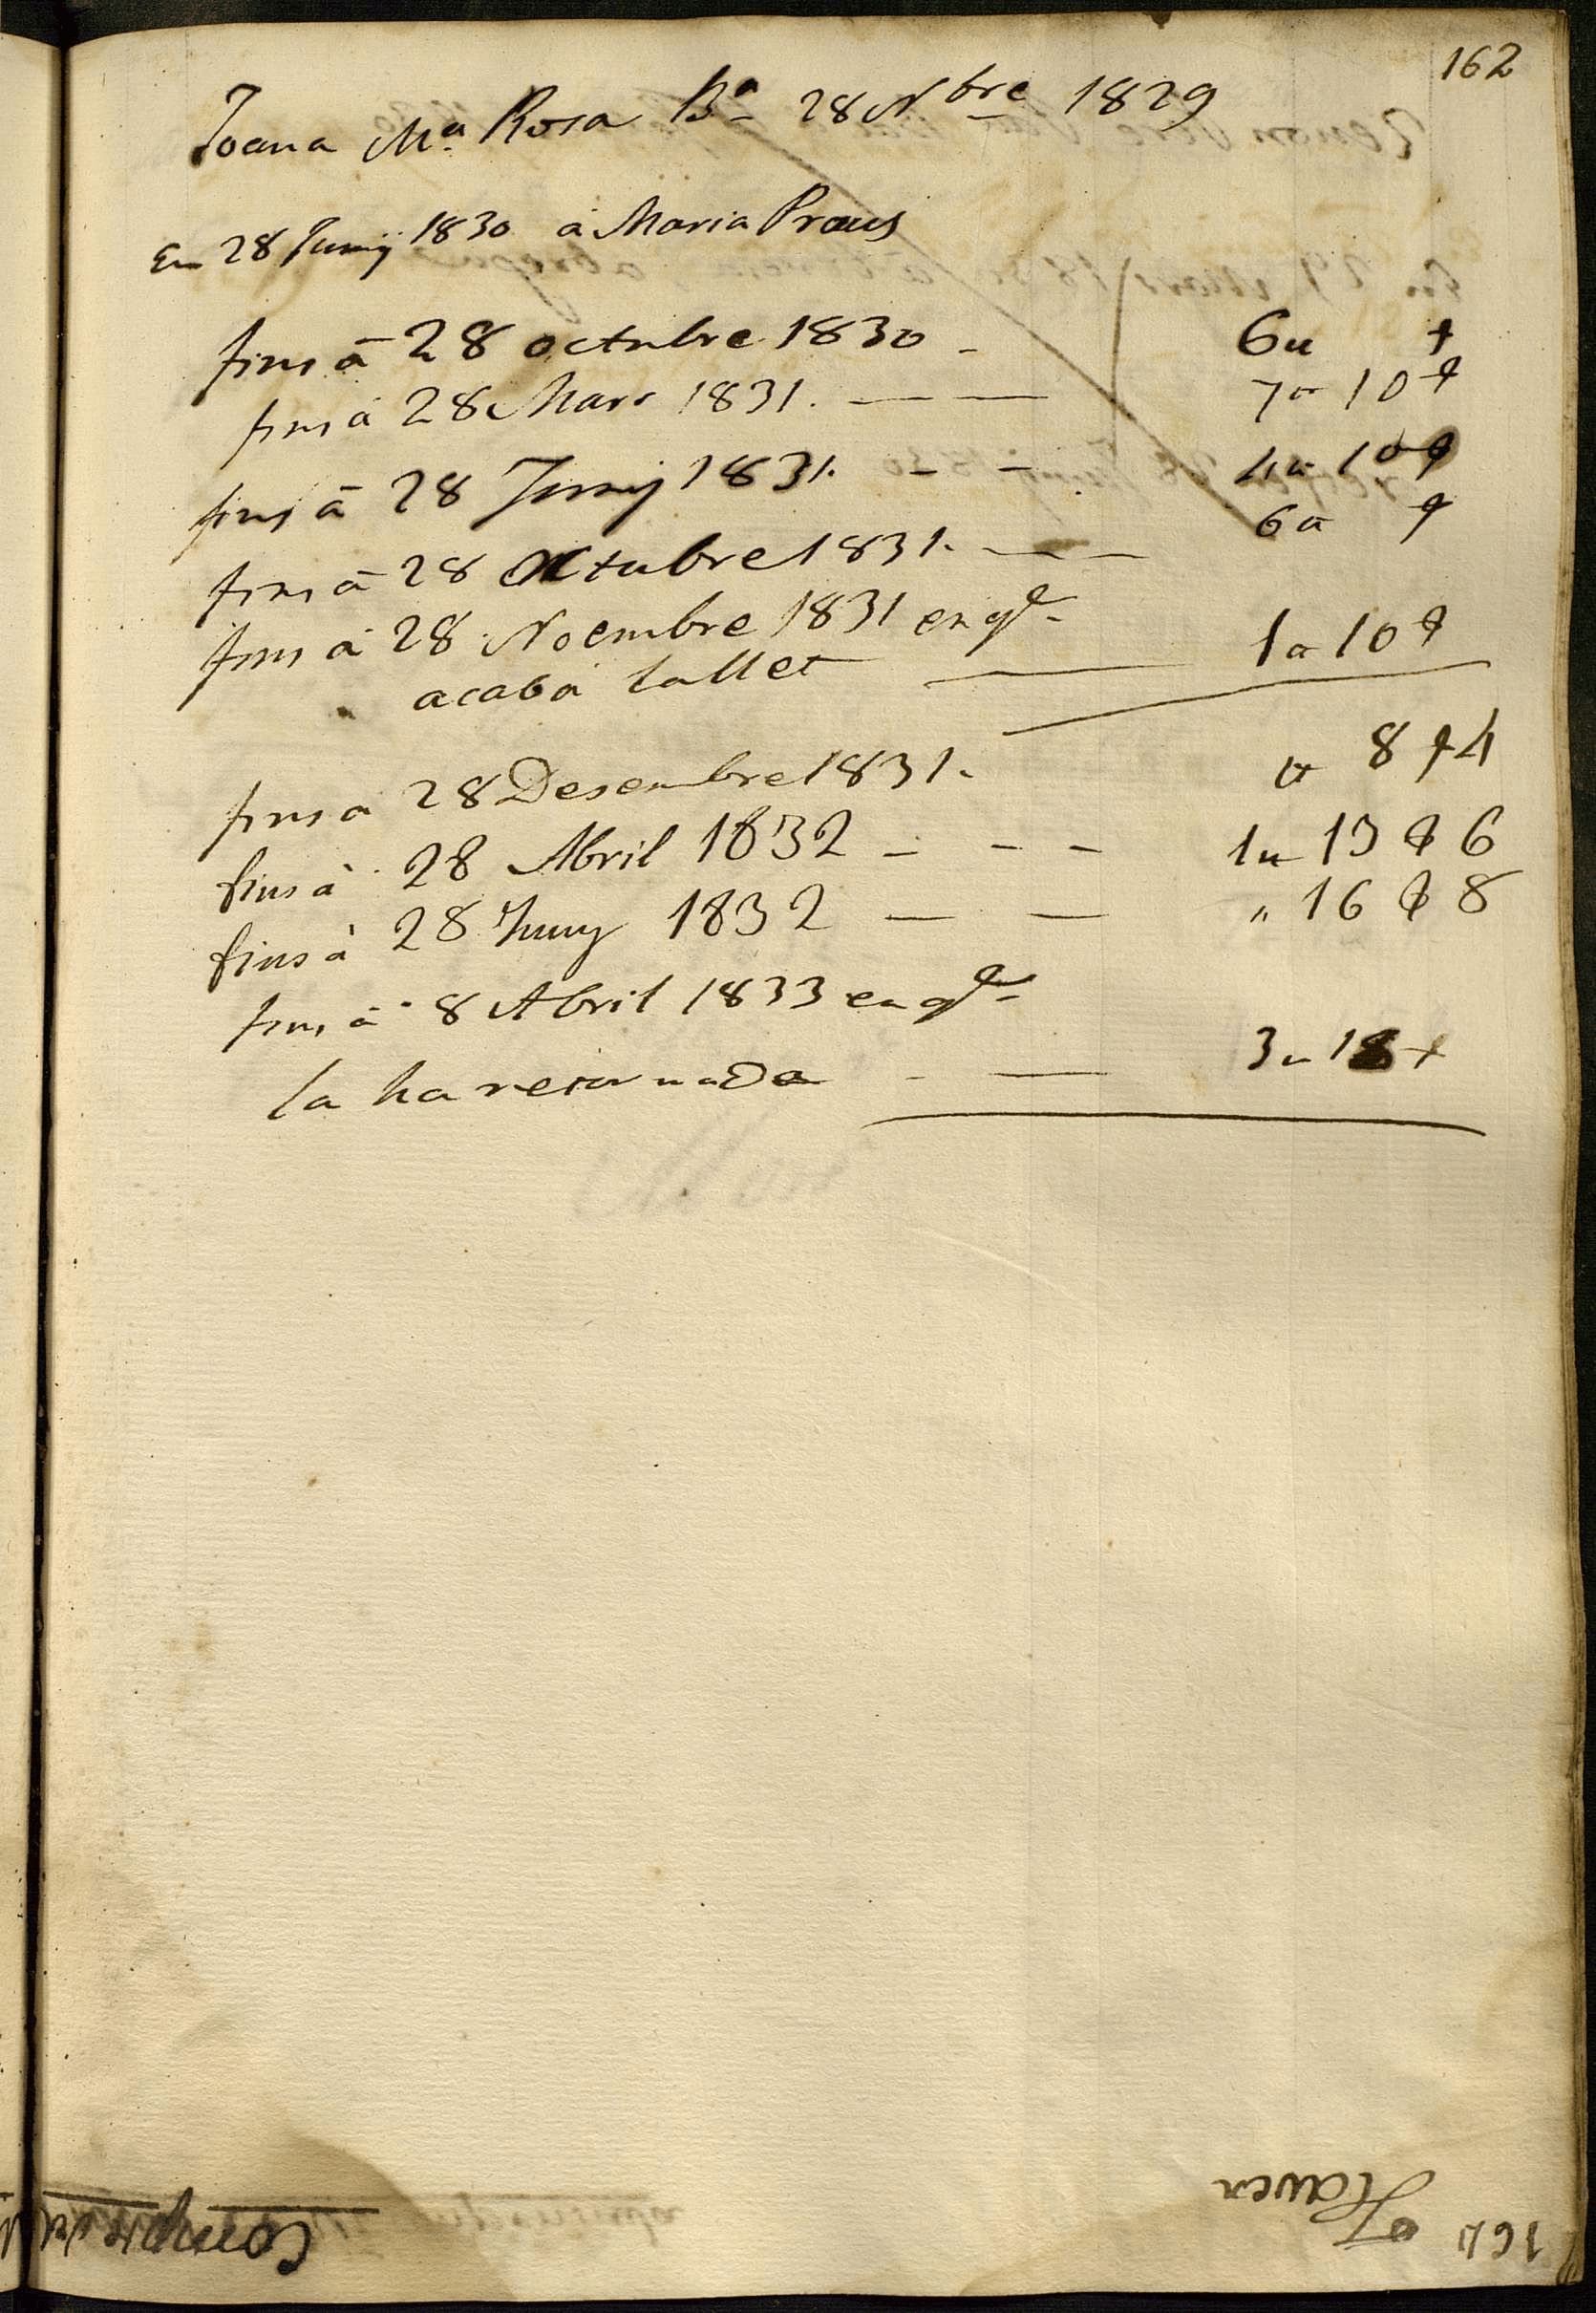 162
Joana Mª Rosa Bª 28 Nbre 1829
En 28 Juny 1830 á Maria Praus
fins á 28 octubre 1830 - 6 ₶ ƒ
fins á 28 Mars 1831. — — 7 ₶ 10 ƒ
fins á 28 Juny 1831. - - 4 ₶ 10 ƒ
fins á 28 Octubre 1831. — — 6 ₶ ƒ
fins á 28 Noembre 1831 en qe
acabá lallet — 1 ₶ 10 ƒ
fins a 28 Desembre 1831. ₶ 8 ƒ 4
fins á 28 Abril 1832 - - - 1 ₶ 13 ƒ 6
fins á 28 Juny 1832 — — " 16 ƒ 8
fins á 8 Abril 1833 en qe
la ha retornada - — 3 ₶ 18 ƒ
164